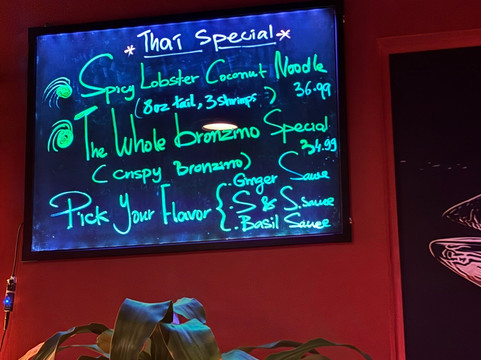 * Thai Special *
Spicy Lobster Coconut Noodle
(8oz tail, 3 shrimps) 36.99
The Whole bronzino Special
34.99
(crispy Bronzino)
Pick Your Flavor { . Ginger Sauce
. S & S. sauce
. Basil Sauce